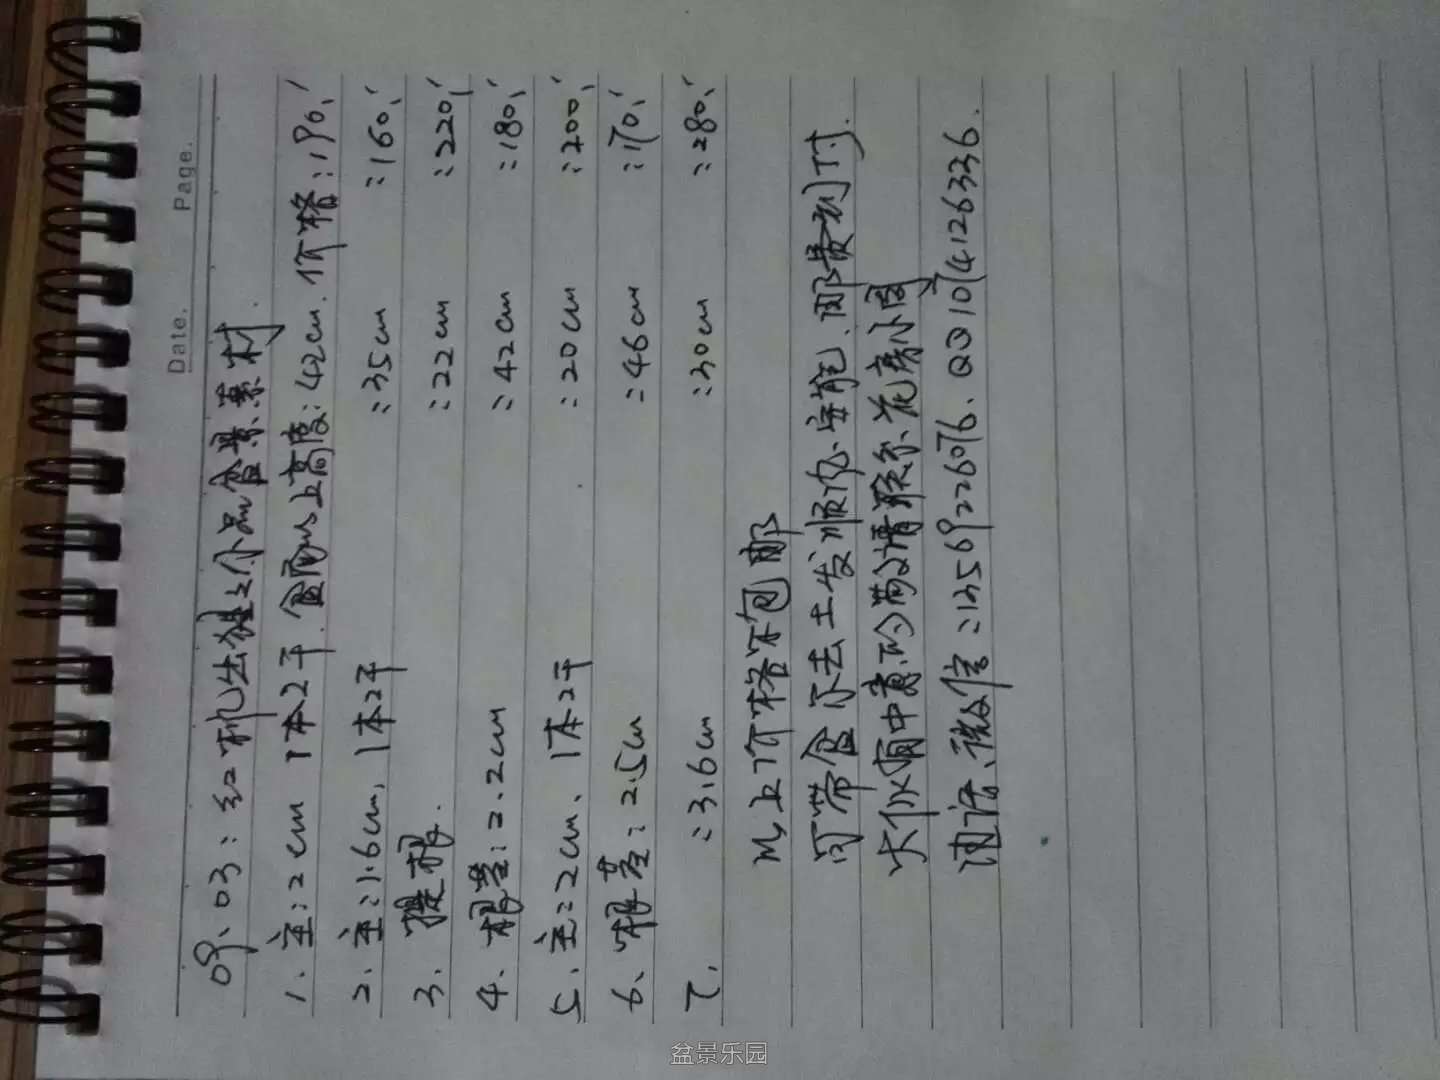 Date.
Page.
09、03:红机出猩之小品盆景素材.
1. 主:2cm 1本2干.盆面以上高度:42cm.价格:190,
2. 主:1.6cm, 1本2干 :35cm :160,
3. 提根. :22cm :220,
4. 根茎:2.2cm :42cm :180,
5. 主:2cm、1本2干 :20cm :200,
6、根茎:2.5cm :46cm :170,
7. :3.6cm :30cm :280,
以上价格不包邮
可带盆不去土发顺风.安能.邮费到付.
大伙有中意的敬请联系花房小周
电话、微信:13569226076.QQ1074126336.
盆景乐园